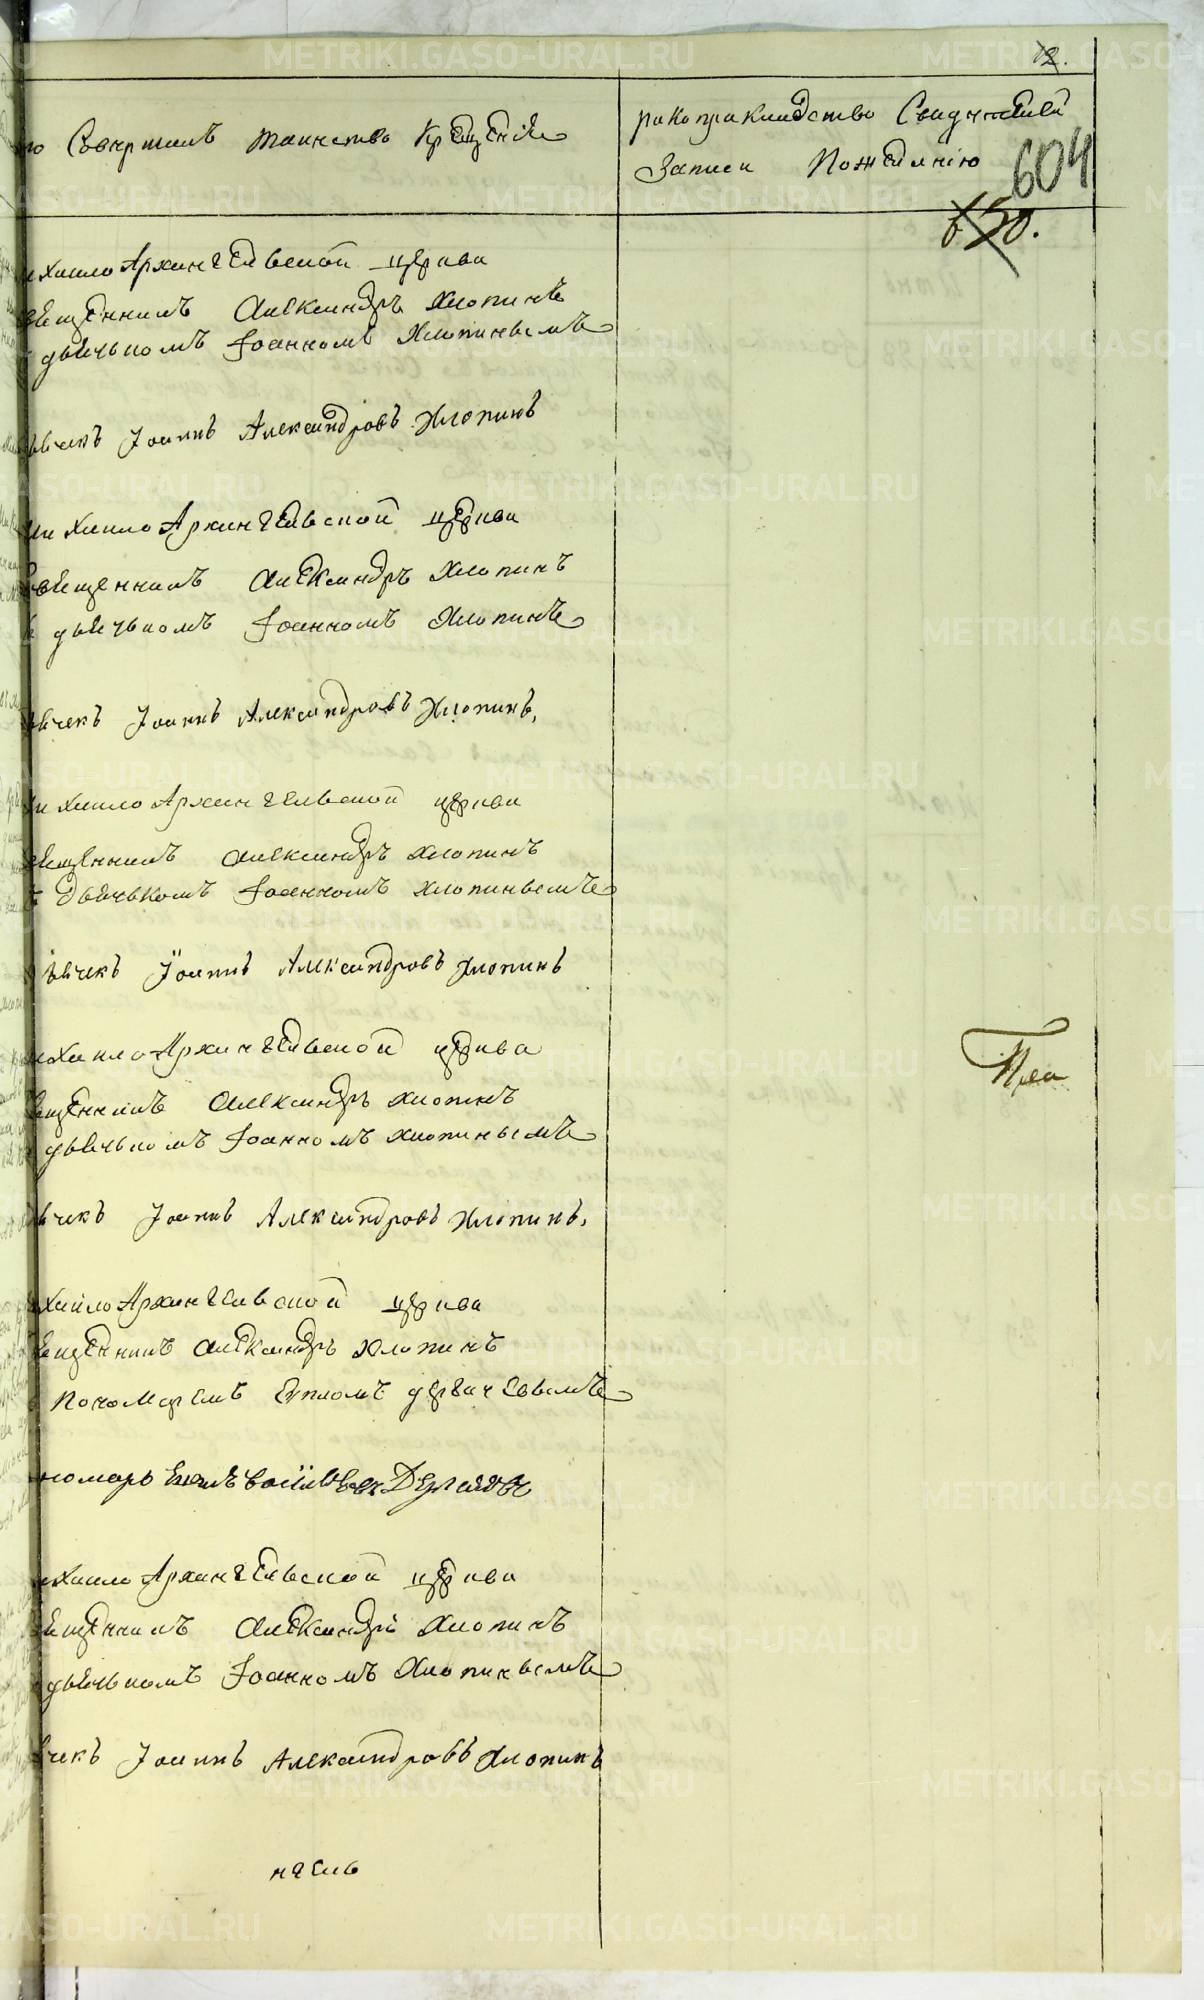 12.
то Совершилъ таинство Крещенія
рукоприкладство Свидѣтелей
Записи Пожеланію
604
650.
ихаило Архангельской церкви
вященникъ Александръ Хлопинъ
дьячькомъ Іоанномъ Хлопинымъ
ьячекъ Іоаннъ Александровъ Хлопинъ
ихаило Архангельской церкви
священникъ Александръ Хлопинъ
дьячькомъ Іоанномъ Хлопинъ
ьячекъ Іоаннъ Александровъ Хлопинъ,
ихаило Архангельской церкви
вященникъ Александръ Хлопинъ
дьячькомъ Іоанномъ Хлопинымъ
ьячекъ Іоаннъ Александровъ Хлопинъ
ихаило Архангельской церкви
вященникъ Александръ Хлопинъ
дьячькомъ Іоанномъ Хлопинымъ
ьячекъ Іоаннъ Александровъ Хлопинъ,
ихайло Архангельской церкви
вященникъ Александръ Хлопинъ
Пономаремъ
номарь
ихаило Архангельской церкви
вященникъ Александръ Хлопинъ
дьячькомъ Іоанномъ Хлопинымъ
ячекъ Іоаннъ Александровъ Хлопинъ
METRIKI.GASO-URAL.RU